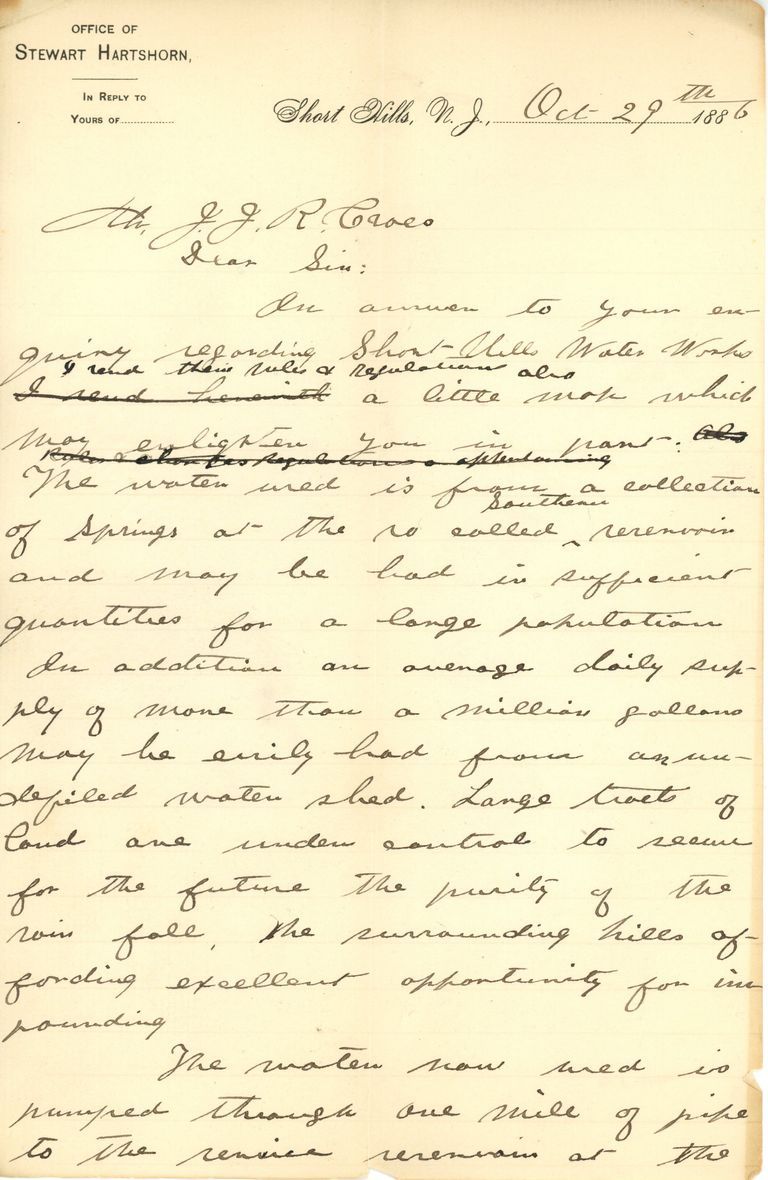 OFFICE OF
STEWART HARTSHORN,
IN REPLY TO
YOURS OF
Short Hills, N. J., Oct 29th 1886
Mr. J. J. R. Croes
Dear Sir:
In answer to your en-
quiry regarding Short Hills Water Works
I send their rules & regulations also
I send herewith a little map which
may enlighten you in part. also
Rules & charges regulations appertaining
The water used is from a collection
Southern
of Springs at the so called ‸ reservoir
and may be had in sufficient
quantities for a large population
In addition an average daily sup-
ply of more than a million gallons
may be easily had from an un-
defiled water shed. Large tracts of
land are under control to secure
for the future the purity of the
rain fall, the surrounding hills af-
fording excellent opportunity for im
pounding
The water now used is
pumped through one mile of pipe
to the service reservoir at the